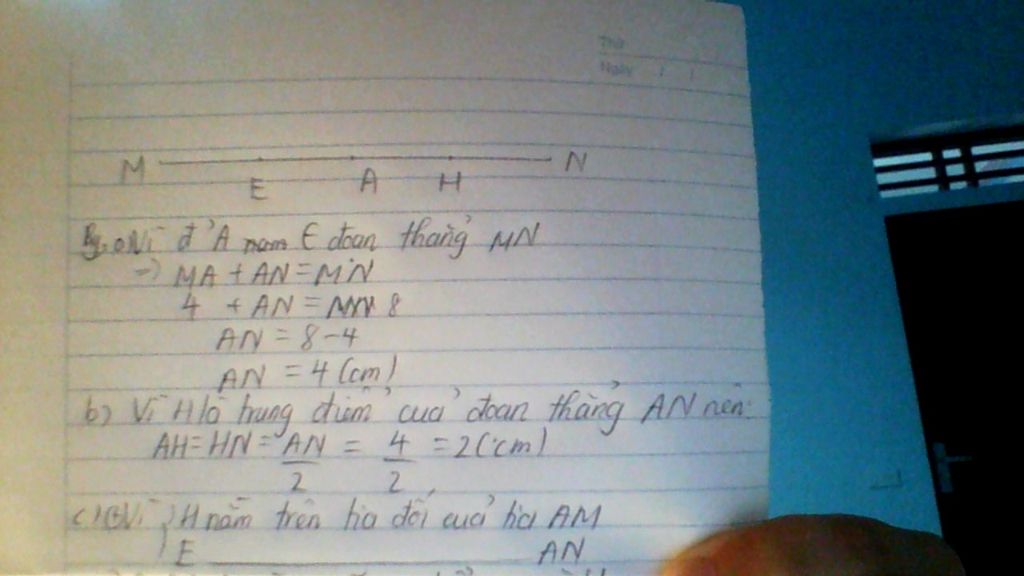 Thứ
Ngày / /
M E A H N
a) Vì đ' A nằm ∈ đoạn thẳng MN
=> MA + AN = MN
4 + AN = 8
AN = 8 - 4
AN = 4 (cm)
b) Vì H là trung điểm của đoạn thẳng AN nên:
AH = HN = AN/2 = 4/2 = 2 (cm)
c) Vì H nằm trên tia đối của tia AM
E AN